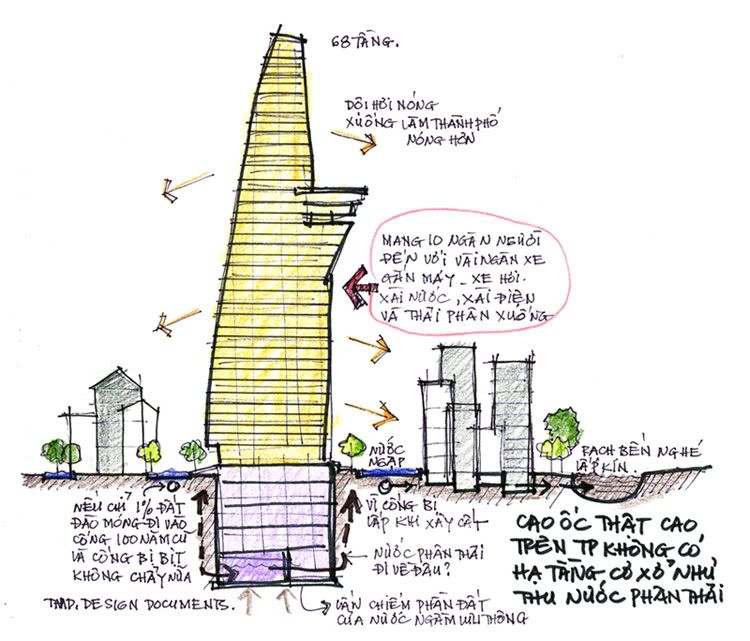 68 TẦNG.
DỘI HƠI NÓNG
XUỐNG LÀM THÀNH PHỐ
NÓNG HƠN
MANG 10 NGÀN NGƯỜI
ĐẾN VỚI VÀI NGÀN XE
GẮN MÁY - XE HƠI.
XÀI NƯỚC, XÀI ĐIỆN
VÀ THẢI PHÂN XUỐNG
NƯỚC
NGẬP
RẠCH BẾN NGHÉ
LẤP KÍN.
NẾU CHỈ 1% ĐẤT
ĐÀO MÓNG ĐI VÀO
CỐNG 100 NĂM CŨ
VÀ CỐNG BỊ BỊT
KHÔNG CHẢY NỮA
TMD. DESIGN DOCUMENTS.
VÌ CỐNG BỊ
LẤP KHI XÂY CẤT
NƯỚC PHÂN THẢI
ĐI VỀ ĐÂU?
VẪN CHIẾM PHẦN ĐẤT
CỦA NƯỚC NGẦM LƯU THÔNG
CAO ỐC THẬT CAO
TRÊN TP KHÔNG CÓ
HẠ TẦNG CƠ XỞ NHƯ
THU NƯỚC PHÂN THẢI